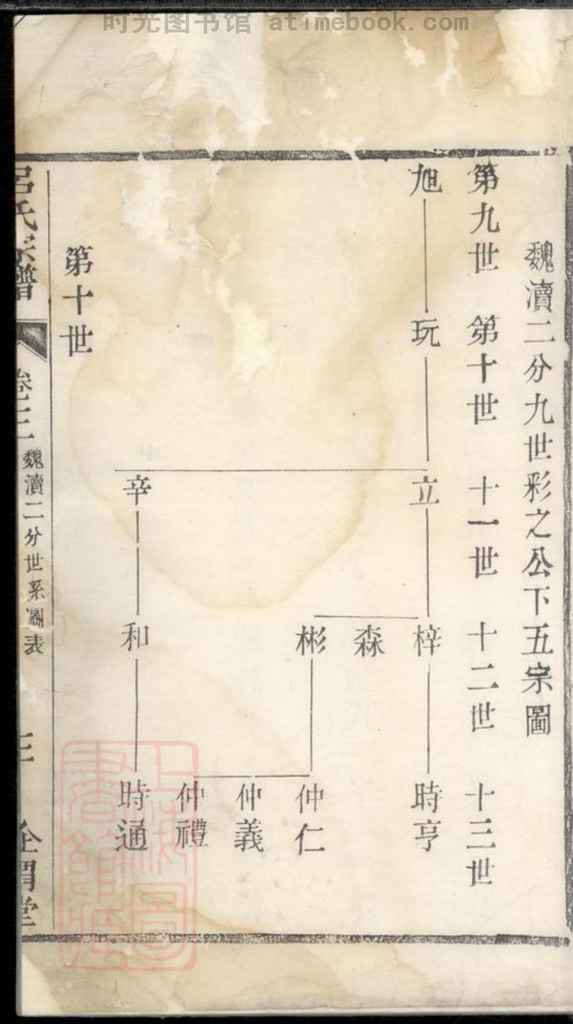 时光图书馆 atimebook.com
魏瀆二分九世彩之公下五宗圖
第九世 第十世 十一世 十二世 十三世
旭 玩 立 梓 時亨
森
彬 仲仁
仲義
仲禮
辛 和 時通
第十世
呂氏宗譜 卷 魏瀆二分世系圖表